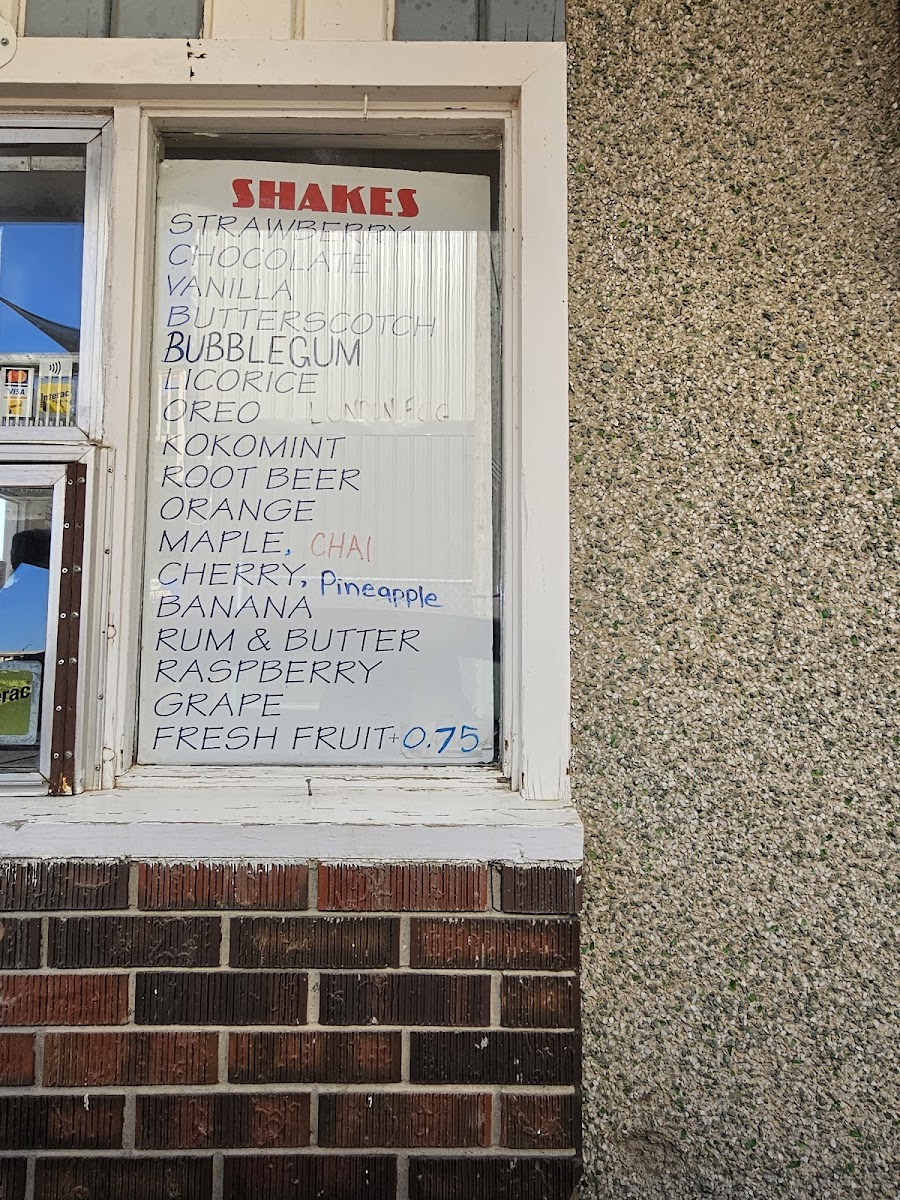 SHAKES
STRAWBERRY
CHOCOLATE
VANILLA
BUTTERSCOTCH
BUBBLEGUM
LICORICE
OREO LUNDUN FOG
KOKOMINT
ROOT BEER
ORANGE
MAPLE, CHAI
CHERRY, Pineapple
BANANA
RUM & BUTTER
RASPBERRY
GRAPE
FRESH FRUIT+0.75
VISA
Interac
erac